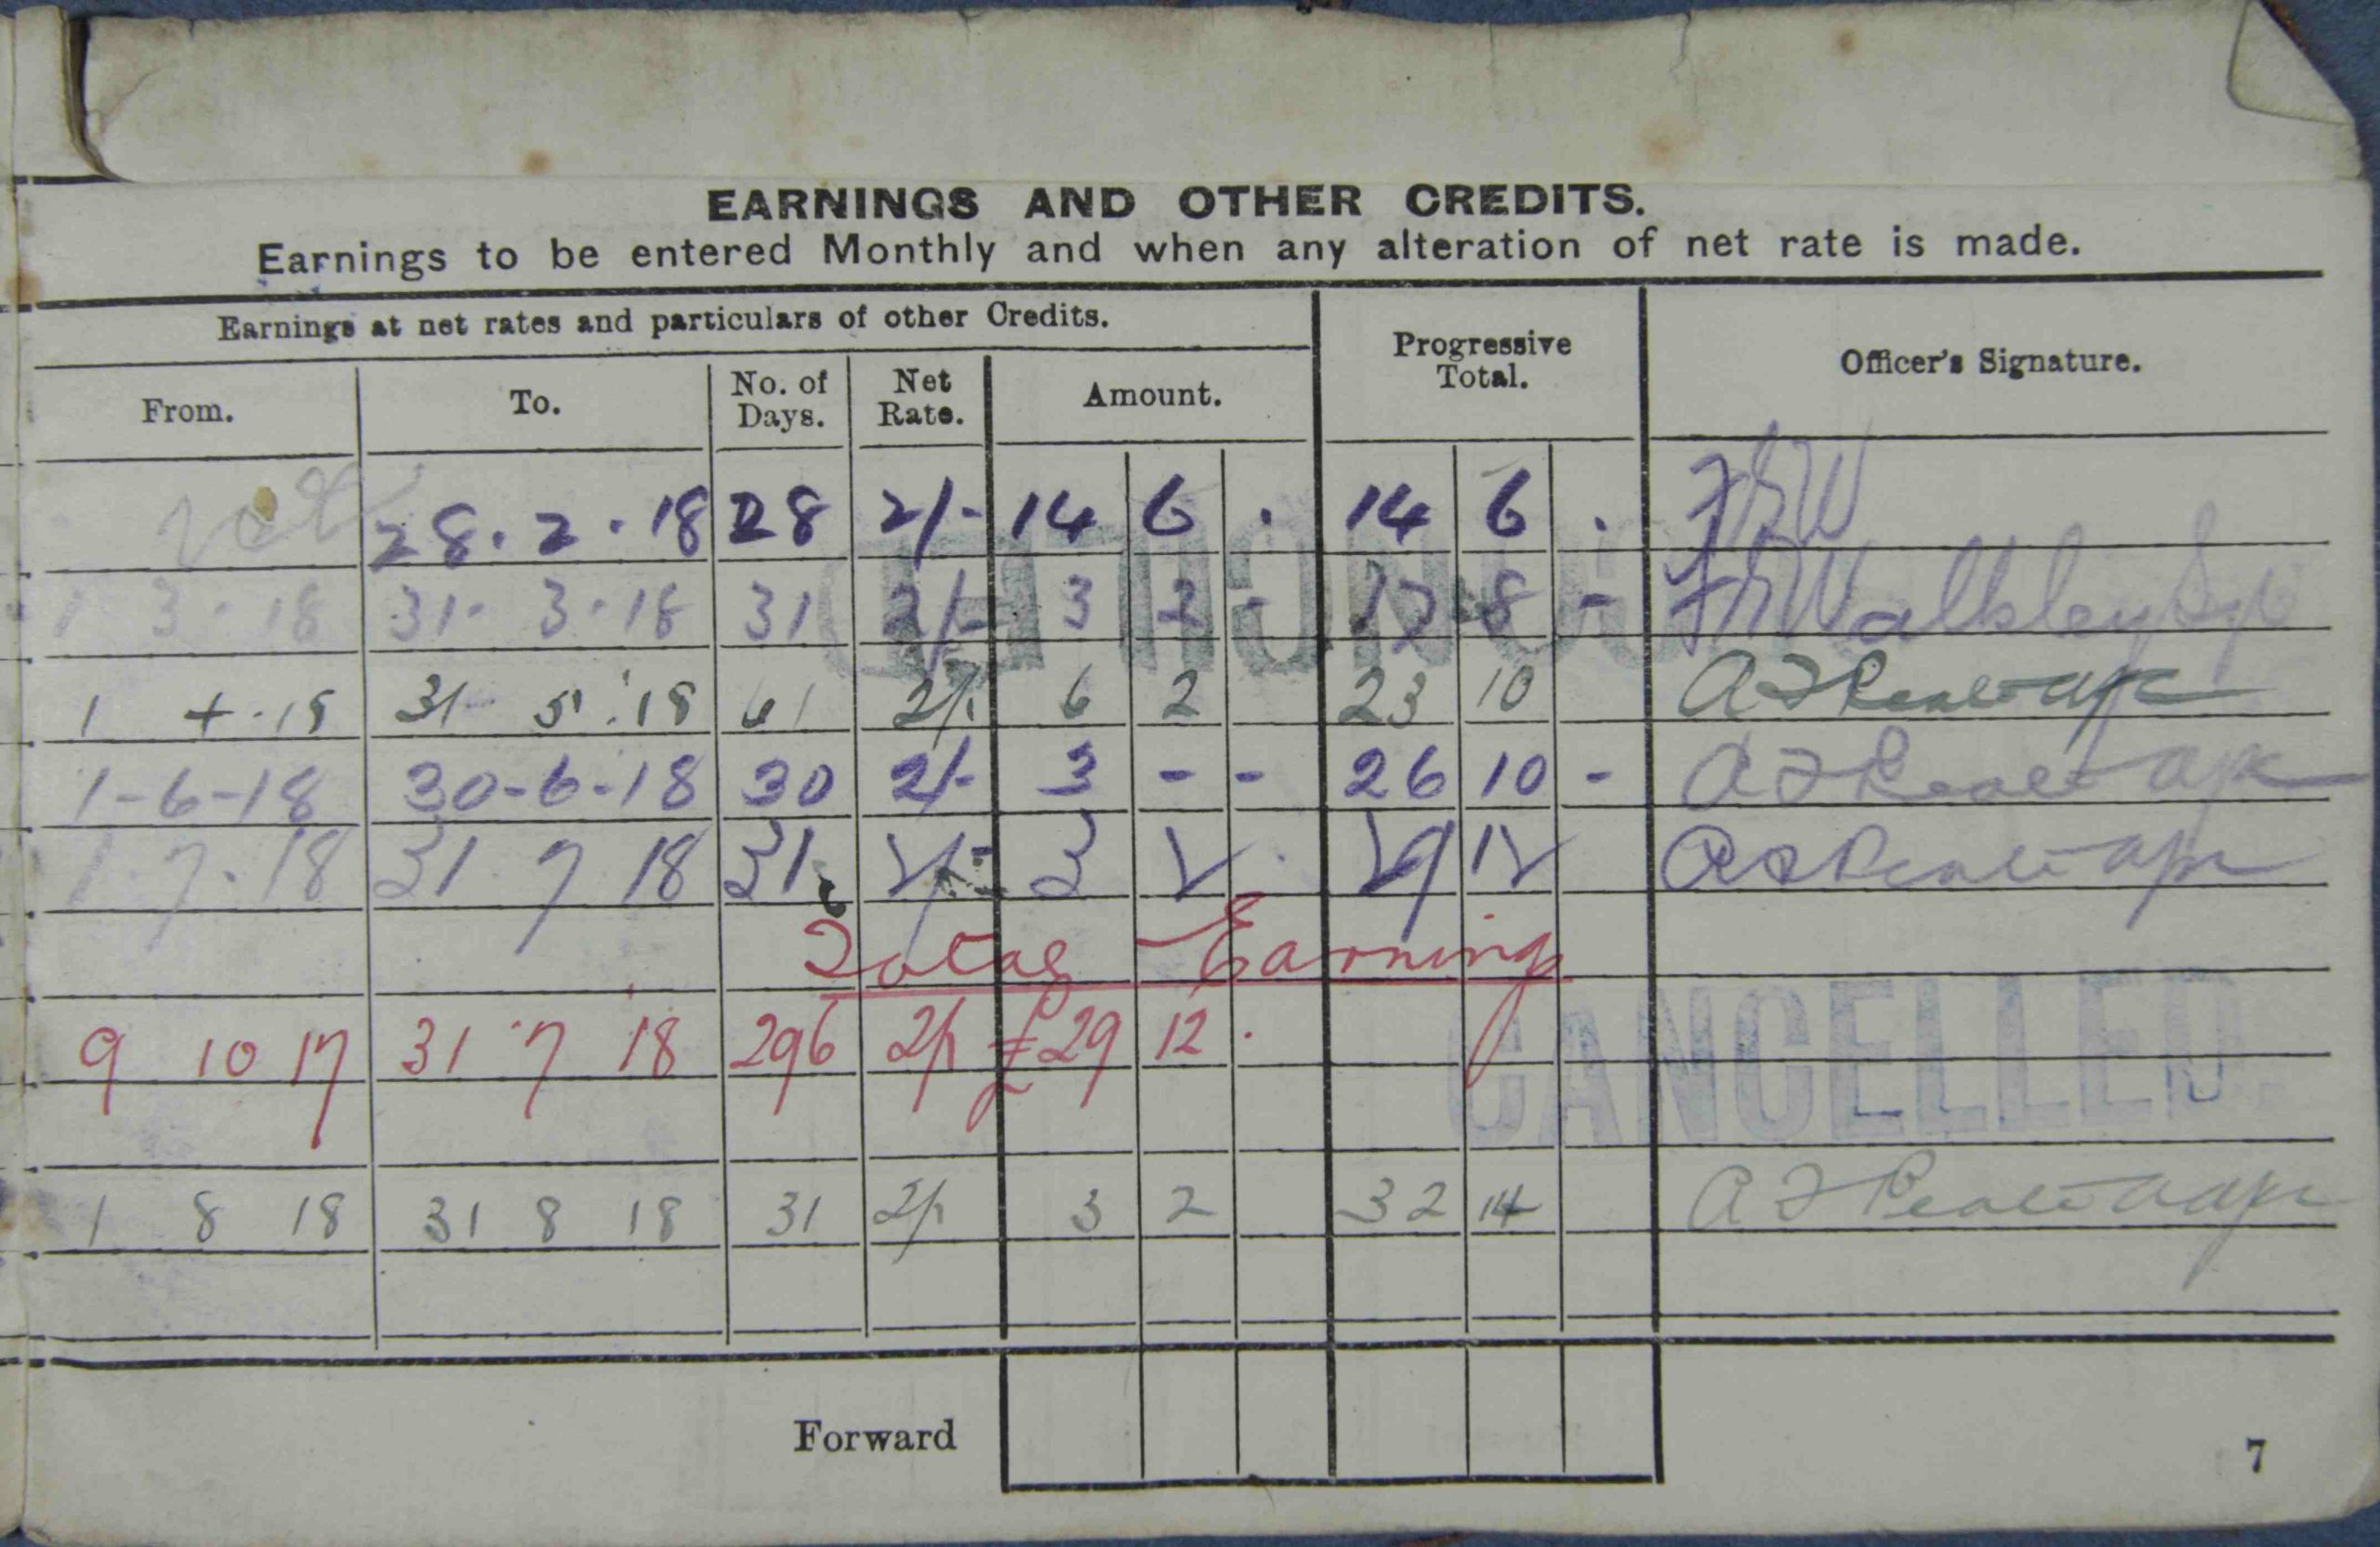 EARNINGS AND OTHER CREDITS.
Earnings to be entered Monthly and when any alteration of net rate is made.
Earnings at net rates and particulars of other Credits. Progressive Total. Officer's Signature.
From. To. No. of Days. Net Rate. Amount.
28.2.18 28 2/- 14 6 . 14 6 . FRW
1 3.18 31.3.18 31 2/- 3 2 - 17 8 - FRWalkley
1 4.18 31 5.18 61 2/- 6 2 23 10
1-6-18 30-6-18 30 2/- 3 - - 26 10 -
1.7.18 31 7 18 31 2/- 3 2 . 29 12
Total Earnings
9 10 17 31 7 18 296 2/- £29 12 .
CANCELLED
1 8 18 31 8 18 31 2/- 3 2 32 14
Forward
7